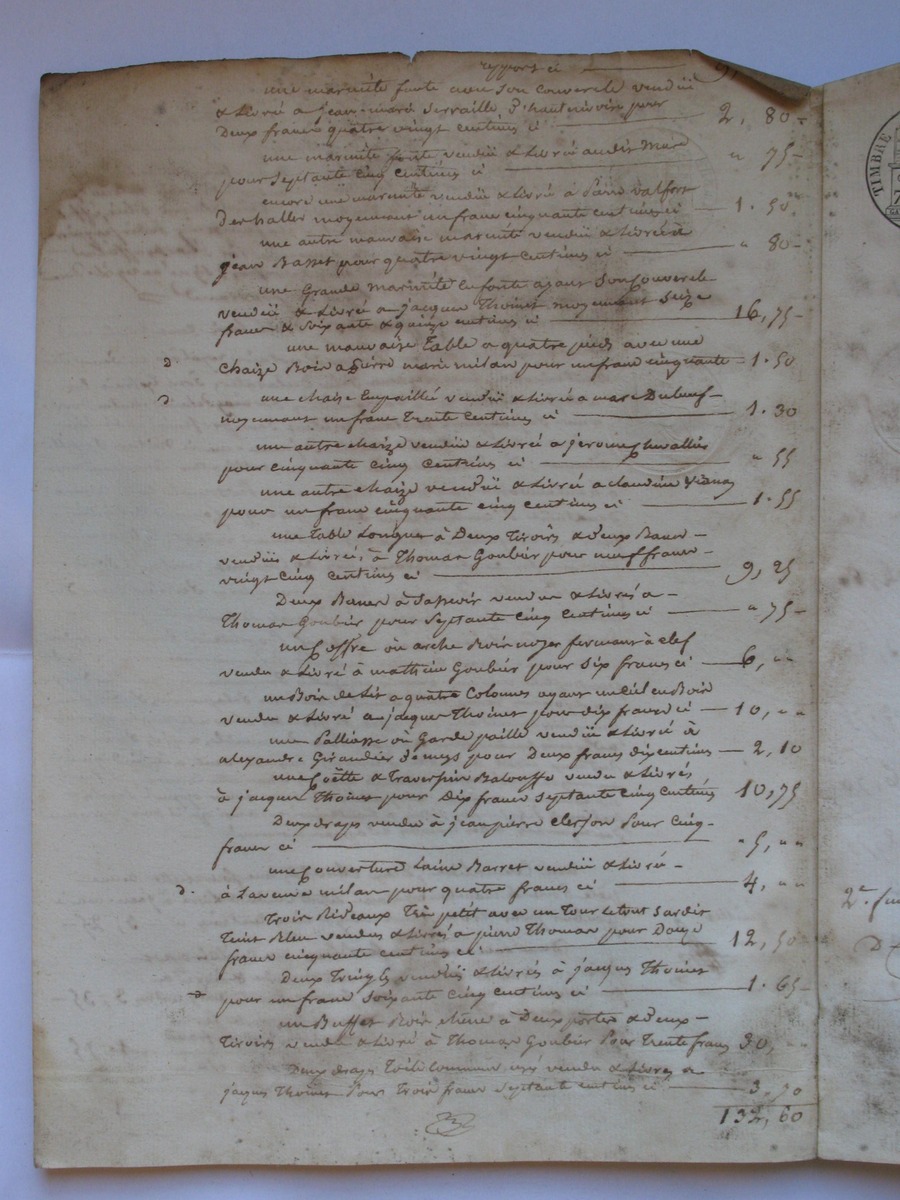 report ci 9
une marmite fonte avec son couvercle vendüe
& Livrée a jean marie Servaille d'haut pour
Deux francs quatre vingt Centimes ci 2, 80
une marmite fonte vendüe & Livrée audit Mare
pour Septante Cinq Centimes ci " 75
encore une marmite vendüe & Livrée à Pierre Valfort
Des halles moyennant un franc cinquante Centimes ci 1. 50
une autre mauvaise marmite vendüe & Livrée à
jean Basset pour quatre vingt Centimes ci " 80
une Grande marmite En fonte ayant Son Couvercle
vendüe & Livrée a jacques Thoinet moyennant Seize
francs & Soixante & quinze centimes ci 16, 75
une mauvaise Table a quatre pieds avec une
D Chaize Bois a pierre marie milan pour un franc cinquante 1. 50
D une chaise Empaillée vendüe & Livrée a marc Dubeuf
moyennant un franc Trente Centimes ci 1. 30
une autre chaize vendüe & Livrée a jerome Chevallier
pour cinquante cinq Centimes ci " 55
une autre chaize vendüe & Livrée a claudine
pour un franc cinquante cinq Centimes ci 1. 55
une Table Longue à Deux Tiroirs & deux Bancs
vendue & Livrée à Thomas Goubier pour neuf francs
vingt Cinq Centimes ci 9, 25
Deux Bancs à Sasseoir vendus & Livrés a
Thomas Goubier pour Septante Cinq Centimes ci " 75
un Coffre où arche Bois noyer fermant à clef
vendu & Livré à mathieu Goubier pour Six francs ci 6, " "
un Bois de Lit a quatre Colonnes ayant un Ciel en Bois
vendu & Livré a jacques Thoinet pour dix francs ci 10, " "
une Palliasse où Garde paille vendüe & Livrée à
alexandre Giraudier pour Deux francs dix centimes 2, 10
une Coëtte & Traversin Balouffe vendu & Livrés
à jacques Thoinet pour Dix francs Septante Cinq Centimes 10, 75
Deux draps vendu à jean pierre clerjon Pour Cinq
francs ci 5, " "
une Couverture Laine Barret vendüe & Livrée
D. à Laveuve milan pour quatre francs ci 4, " "
Trois Rideaux Très petit avec un Tour Letout Sardit
Teint Bleu vendus & Livrés à pierre Thomas pour Douze
francs cinquante centimes ci 12, 50
Deux Tringles vendües & Livrés à jacques Thoinet
D pour un franc Soixante Cinq Centimes ci 1. 65
un Buffet Bois chêne à Deux portes & Deux
Tiroirs vendu & Livré à Thomas Goubier Pour Trente francs 30, " "
Deux draps Toile Commune usé vendu & Livrés a
jacques Thoinet Pour Trois francs Septante centimes ci 3. 70
132, 60
TIMBRE
2e.
D